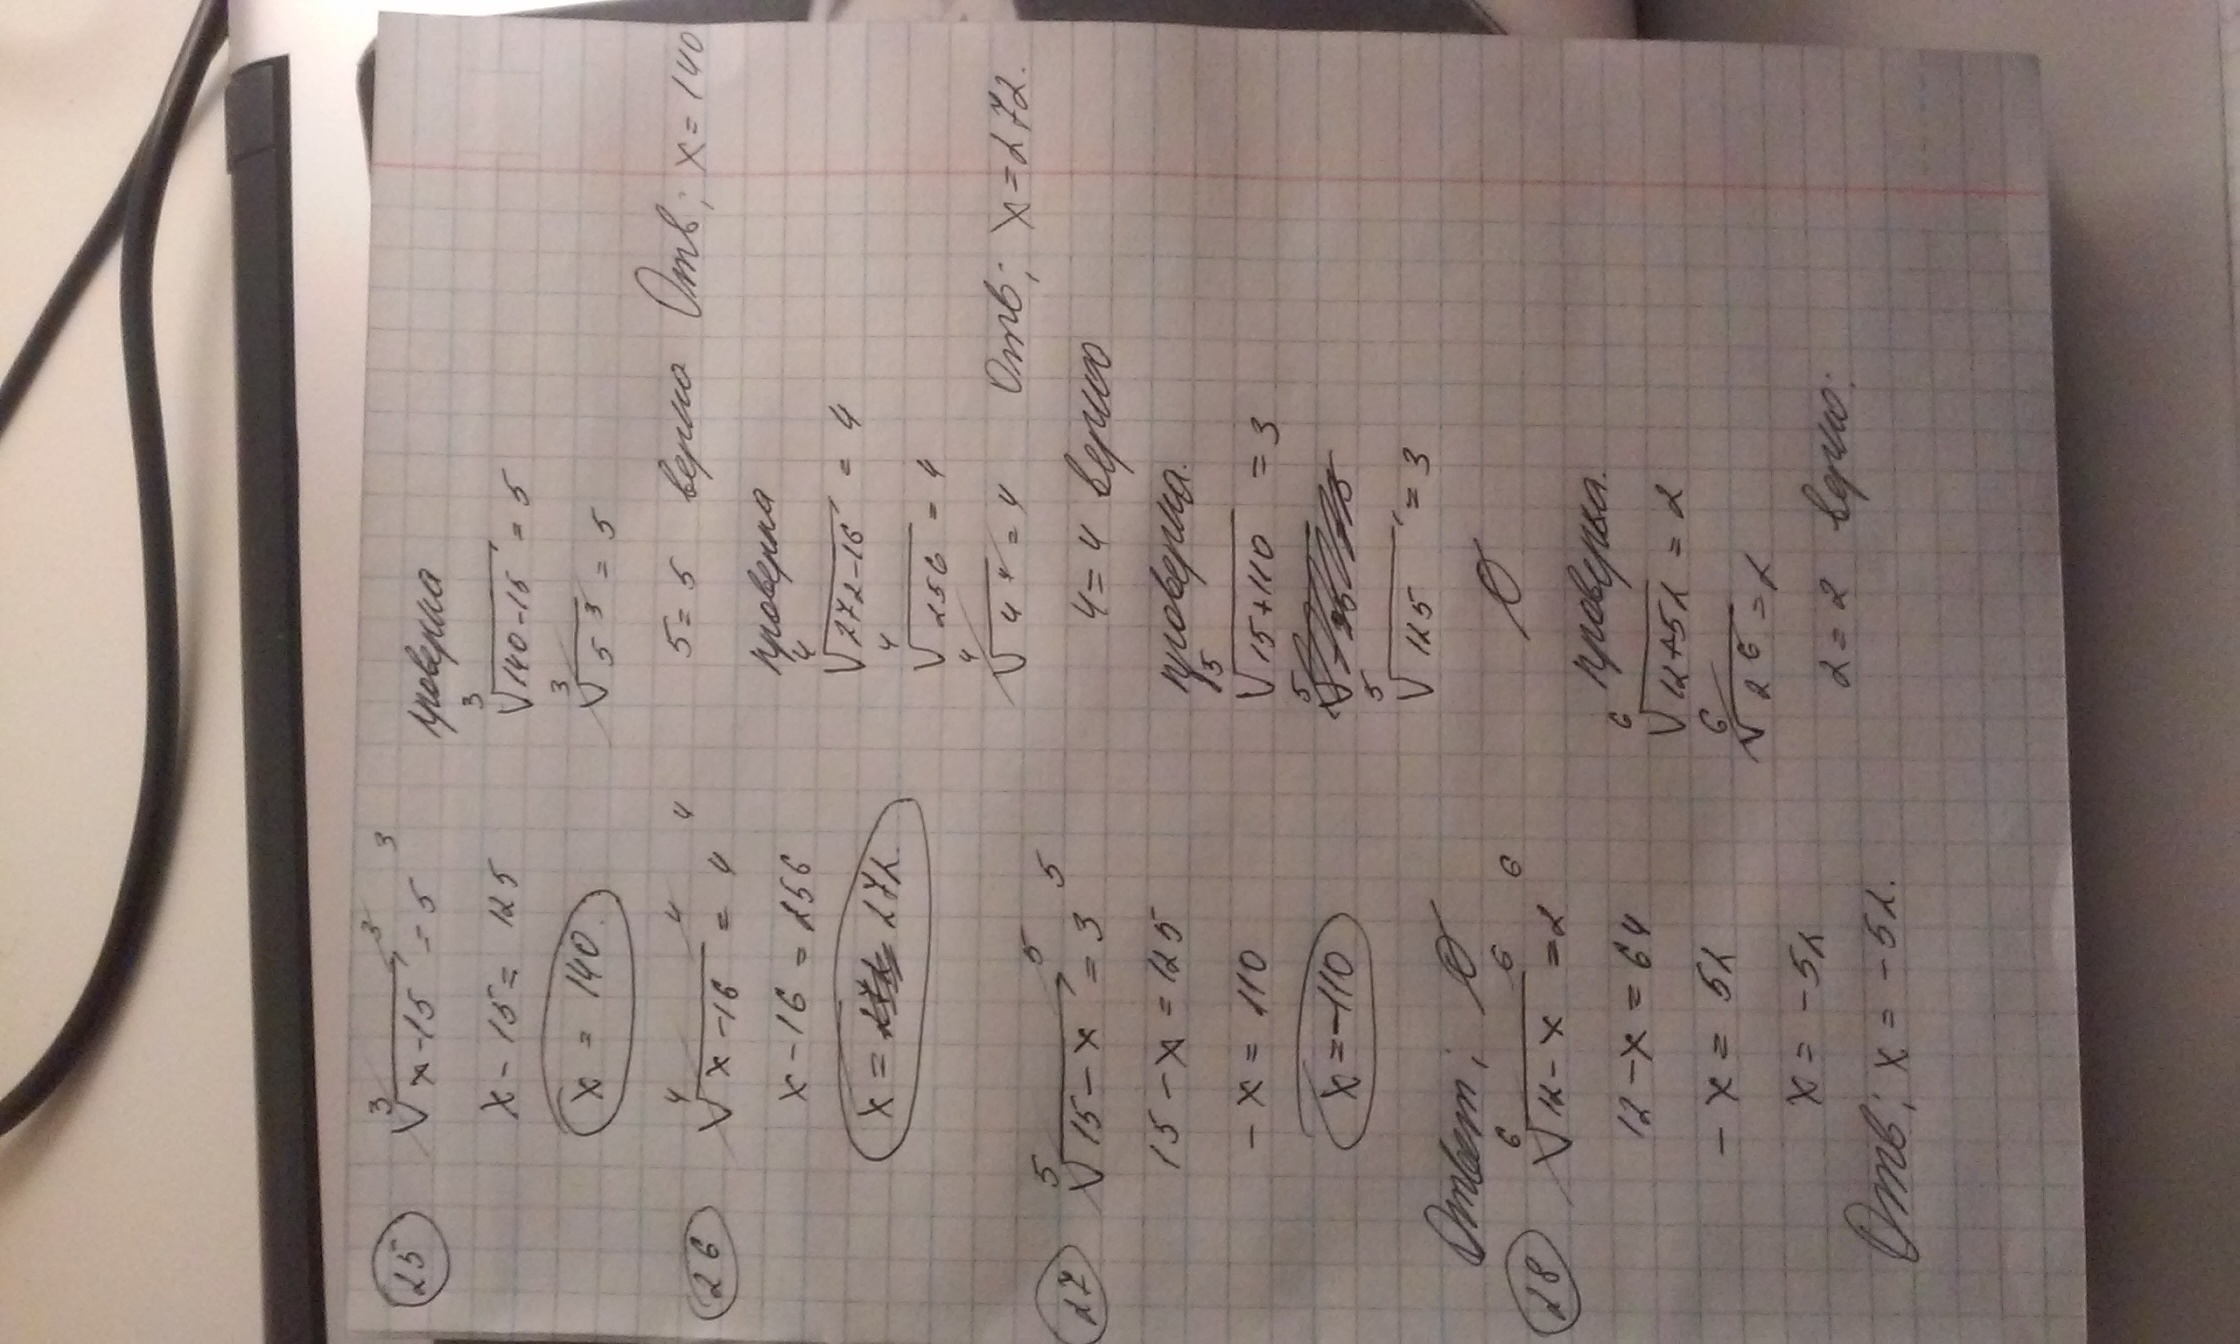 25 ³√(x-15)³ = 5³
x - 15 = 125
x = 140
проверка
³√(140-15) = 5
³√5³ = 5
5 = 5 верно Отв; x = 140
26 ⁴√(x-16)⁴ = 4⁴
x - 16 = 256
x = 272.
проверка
⁴√(272-16) = 4
⁴√256 = 4
⁴√4⁴ = 4 Отв; x = 272.
4 = 4 верно
27 ⁵√(15-x)⁵ = 3⁵
15 - x = 125
- x = 110
x = -110
проверка.
⁵√(15+110) = 3
⁵√125 = 3
∅
Ответ; ∅
28 ⁶√(12-x)⁶ = 2⁶
12 - x = 64
- x = 52
x = - 52
Отв; x = - 52.
проверка.
⁶√(12+52) = 2
⁶√2⁶ = 2
2 = 2 верно.